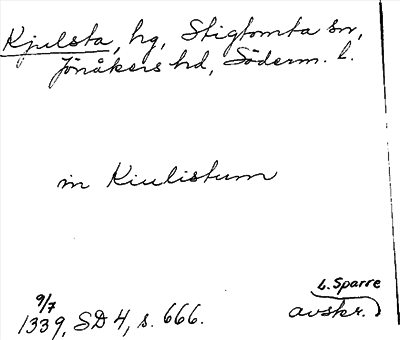 Kjulsta, hg, Stigtomta sn,
Jönåkers hd, Söderm. l.
in Kiulistum
L. Sparre
9/7
1339, SD 4, s. 666.
avskr.